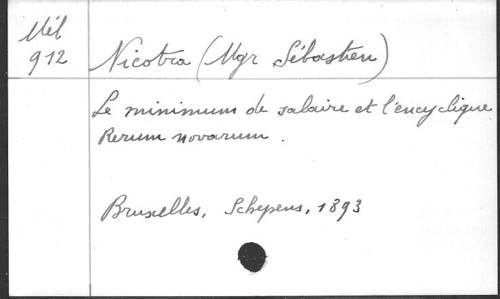 Mél
912
Nicotra (Mgr Sébastien)
Le minimum de salaire et l'encyclique
Rerum novarum.
Bruxelles, Schepens, 1893